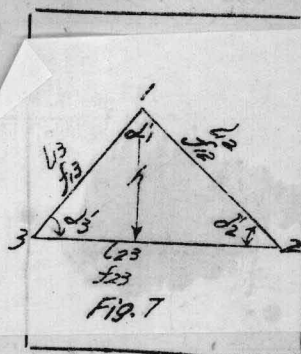 1
l13
f13
l12
f12
α1'
h
α3'
α2'
3
2
l23
f23
Fig. 7